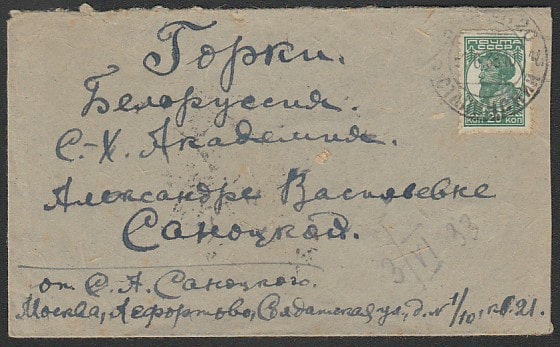 Горки.
Белоруссия.
С.-Х. Академия.
Александре Васильевне
Саноцкой.
от С. А. Саноцкого.
Москва, Лефортово, Солдатская ул., д. № 1/10, кв. 21.
ПОЧТА
СССР
КОП 20 КОП